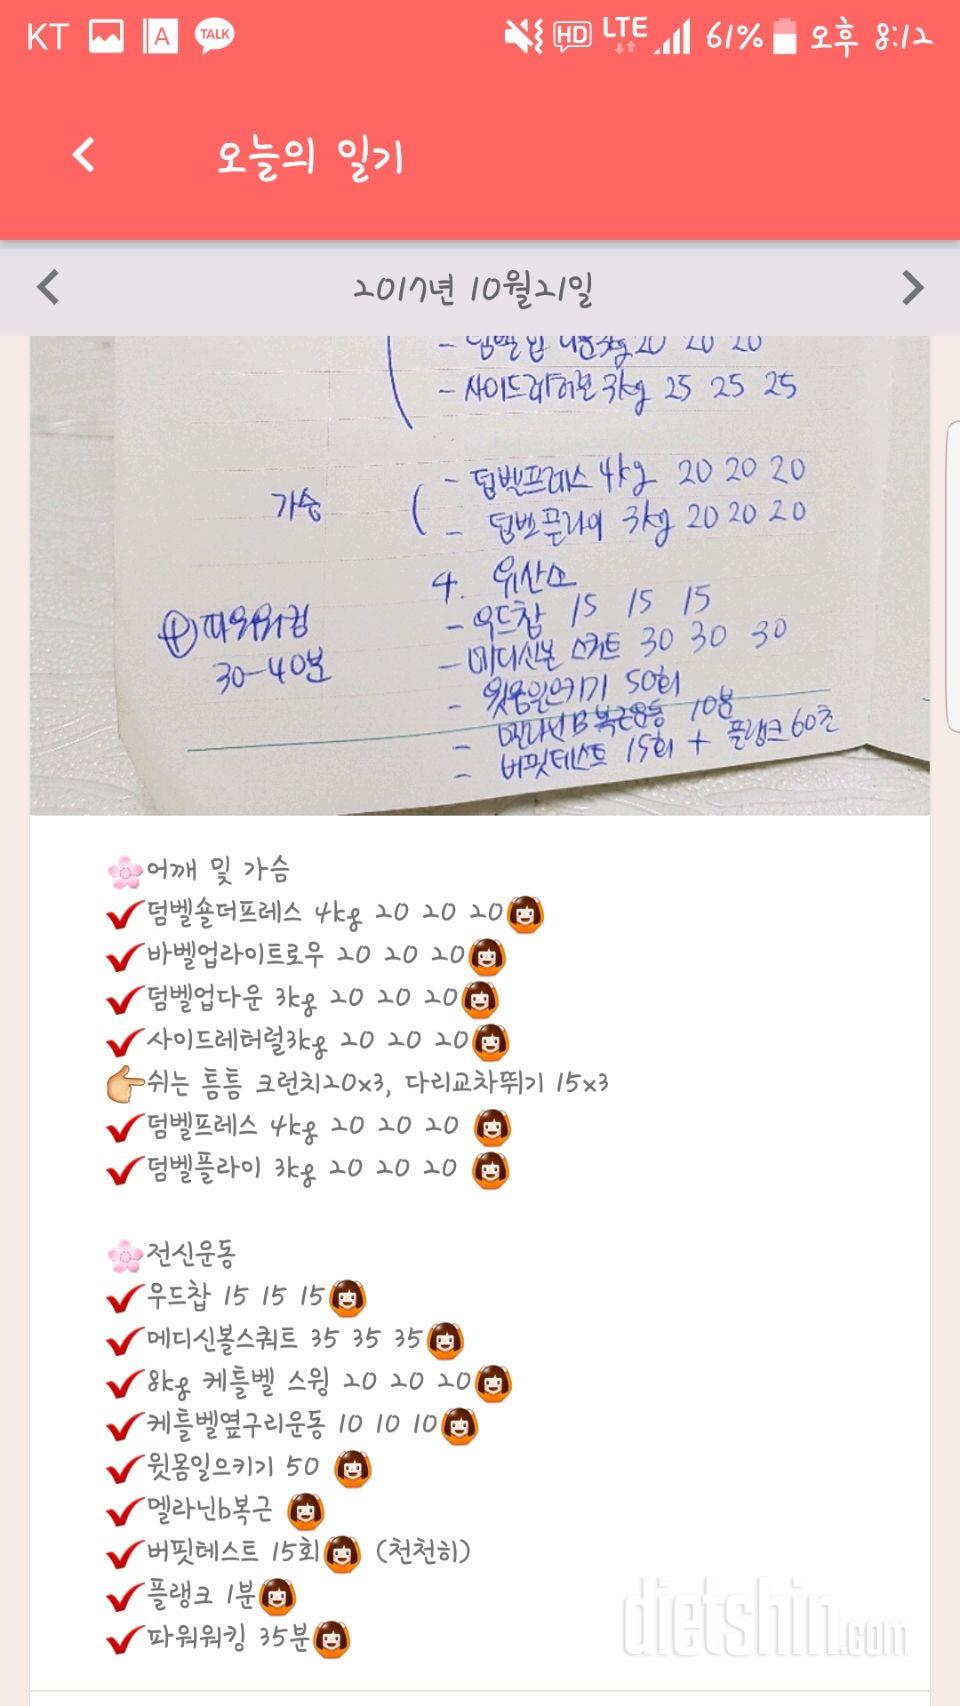 KT A TALK HD LTE 61% 오후 8:12
오늘의 일기
2017년 10월21일
20 20 20
- 사이드레터럴 3kg 25 25 25
가슴
- 덤벨프레스 4kg 20 20 20
- 덤벨플라이 3kg 20 20 20
4. 유산소
- 우드찹 15 15 15
+ 파워워킹
30-40분
- 메디신볼 스쿼트 30 30 30
- 윗몸일으키기 50회
- 멜라닌B 복근운동 10분
- 버핏테스트 15회 + 플랭크 60초
어깨 및 가슴
덤벨숄더프레스 4kg 20 20 20
바벨업라이트로우 20 20 20
덤벨업다운 3kg 20 20 20
사이드레터럴3kg 20 20 20
쉬는 틈틈 크런치20x3, 다리교차뛰기 15x3
덤벨프레스 4kg 20 20 20
덤벨플라이 3kg 20 20 20
전신운동
우드찹 15 15 15
메디신볼스쿼트 35 35 35
8kg 케틀벨 스윙 20 20 20
케틀벨옆구리운동 10 10 10
윗몸일으키기 50
멜라닌b복근
버핏테스트 15회 (천천히)
플랭크 1분
파워워킹 35분
dietshin.com